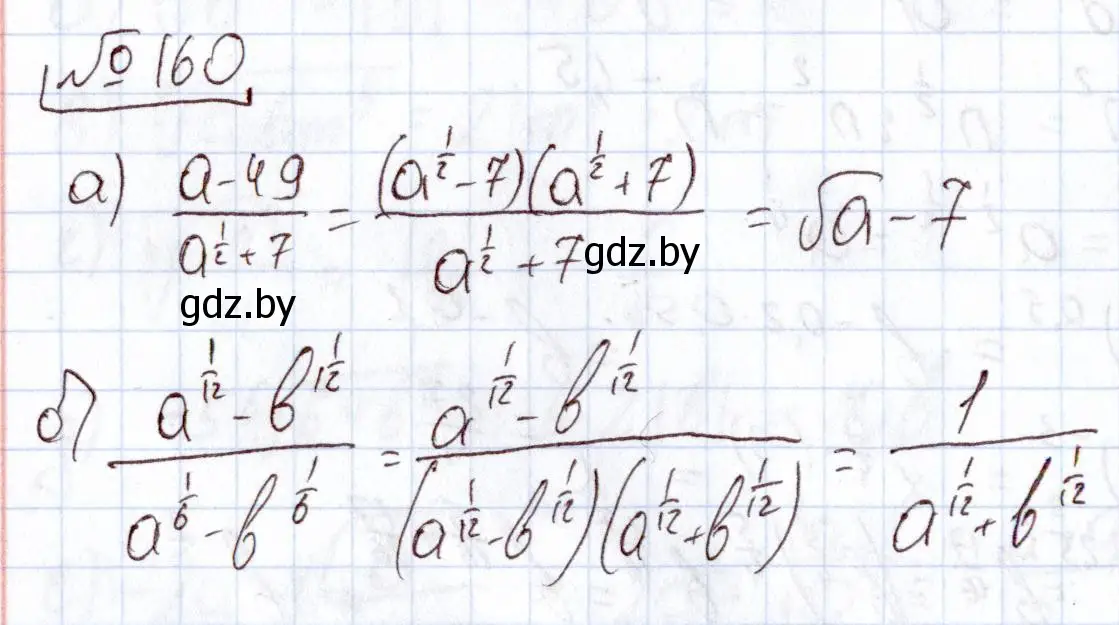 № 160
а) (a - 49)/(a^(1/2) + 7) = ((a^(1/2) - 7)(a^(1/2) + 7))/(a^(1/2) + 7) = √a - 7
gdz.by
gdz.by
б) (a^(1/12) - b^(1/12))/(a^(1/6) - b^(1/6)) = (a^(1/12) - b^(1/12))/((a^(1/12) - b^(1/12))(a^(1/12) + b^(1/12))) = 1/(a^(1/12) + b^(1/12))